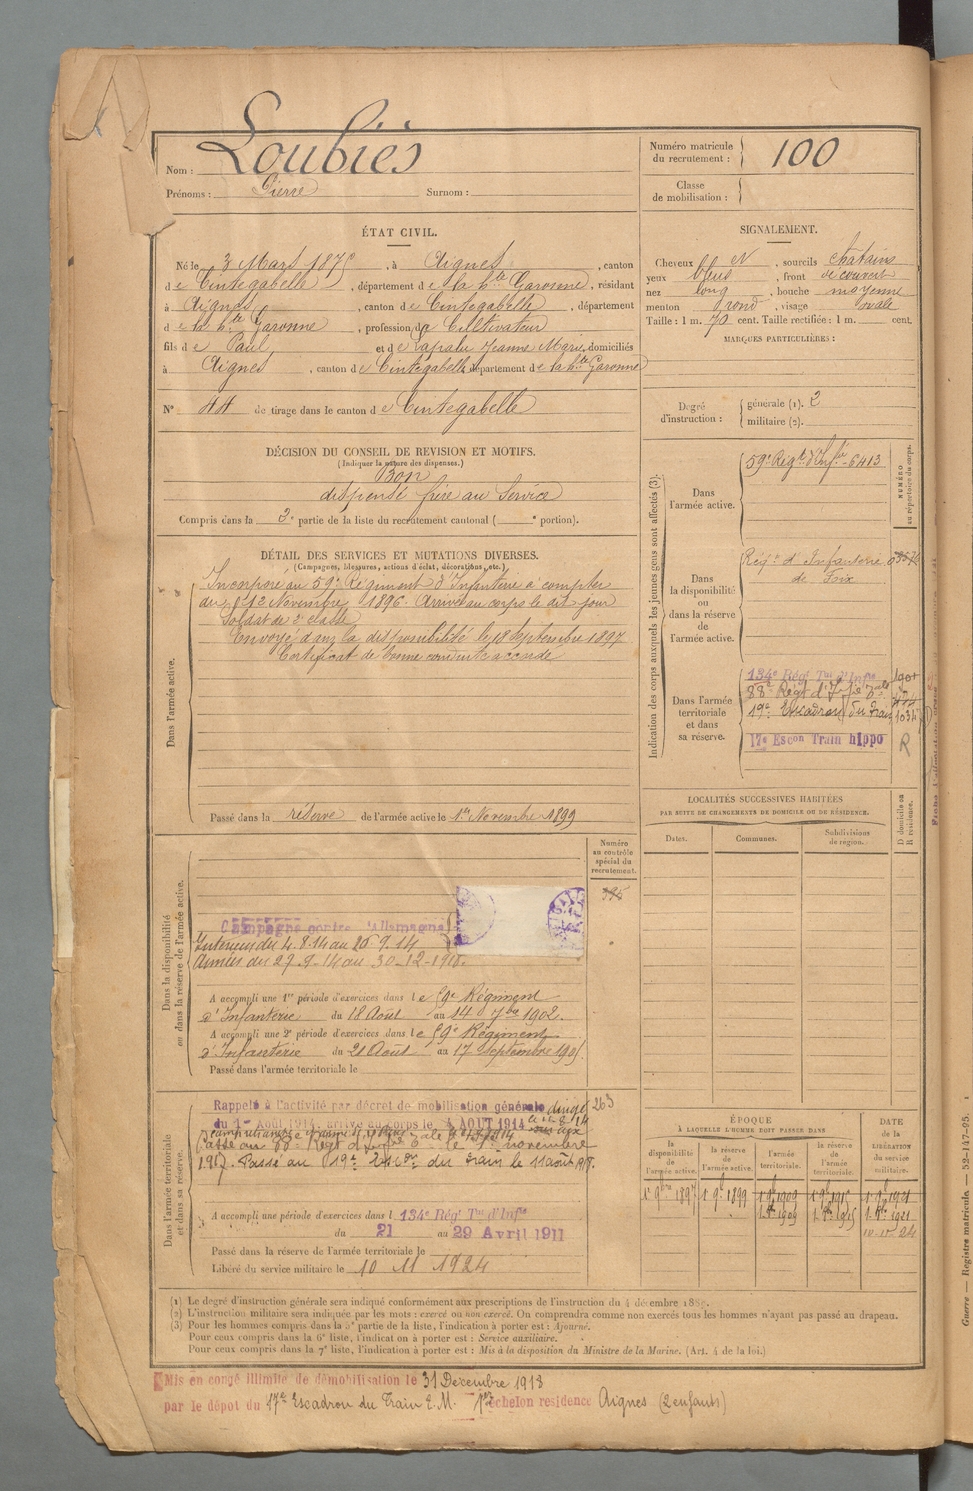 Nom : Loubiès
Prénoms : Pierre Surnom :
Numéro matricule du recrutement : 100
Classe de mobilisation :
ÉTAT CIVIL.
Né le 3 Mars 1875, à Aignes, canton
de Cintegabelle, département de la hte Garonne, résidant
à Aignes, canton de Cintegabelle, département
de la hte Garonne, profession de Cultivateur
fils de Paul et de Lapalu Jeanne Marie, domiciliés
à Aignes, canton de Cintegabelle, département de la hte Garonne
N° 44 de tirage dans le canton de Cintegabelle
SIGNALEMENT.
Cheveux N, sourcils châtains
yeux bleus, front découvert
nez long, bouche moyenne
menton rond, visage ovale
Taille : 1 m. 70 cent. Taille rectifiée : 1 m. cent.
MARQUES PARTICULIÈRES :
Degré d'instruction : générale (1). 2
militaire (2).
DÉCISION DU CONSEIL DE REVISION ET MOTIFS.
(Indiquer la nature des dispenses.)
Bon
dispensé frère au Service
Compris dans la 2e partie de la liste du recrutement cantonal ( e portion).
DÉTAIL DES SERVICES ET MUTATIONS DIVERSES.
(Campagnes, blessures, actions d'éclat, décorations, etc.)
Dans l'armée active.
Incorporé au 59e Régiment d'Infanterie à compter
du 12 Novembre 1896. Arrivé au corps le dit jour
Soldat de 2e classe
Envoyé dans la disponibilité le 18 Septembre 1897
Certificat de bonne conduite accordé
Passé dans la réserve de l'armée active le 1er Novembre 1899
Indication des corps auxquels les jeunes gens sont affectés (3).
NUMÉRO au répertoire du corps.
Dans l'armée active. 59e Régt d'Infie 6413
Dans la disponibilité ou dans la réserve de l'armée active. Régt d'Infanterie
de Foix
Dans l'armée territoriale et dans sa réserve.
134e Régt Tal d'Infie
88e Régt d'Infie
19e Escadron du Train
17e Escon Train hippo R
LOCALITÉS SUCCESSIVES HABITÉES
PAR SUITE DE CHANGEMENTS DE DOMICILE OU DE RÉSIDENCE.
Dates. Communes. Subdivisions de région. D domicile ou R résidence.
Dans la disponibilité ou dans la réserve de l'armée active.
Numéro au contrôle spécial du recrutement.
Campagne contre l'Allemagne
Intérieur du 4.8.14 au 26.9.14
Armées du 27.9.14 au 30-12-1918.
A accompli une 1re période d'exercices dans le 59e Régiment
d'Infanterie du 18 Août au 14 7bre 1902.
A accompli une 2e période d'exercices dans le 59e Régiment
d'Infanterie du 21 Août au 17 Septembre 1905.
Passé dans l'armée territoriale le
Dans l'armée territoriale et dans sa réserve.
Rappelé à l'activité par décret de mobilisation générale dirigé 263
du 1er Août 1914. arrivé au corps le 4 AOUT 1914
Passé au 88e Régt d'Infie le 1er novembre
1917. Passé au 19e Escon du Train le 11 août 1918.
A accompli une période d'exercices dans l 134e Régt Tal d'Infie
du 21 au 29 Avril 1911
Passé dans la réserve de l'armée territoriale le
Libéré du service militaire le 10 11 1924
ÉPOQUE
A LAQUELLE L'HOMME DOIT PASSER DANS
la disponibilité de l'armée active. la réserve de l'armée active. l'armée territoriale. la réserve de l'armée territoriale. DATE de la LIBÉRATION du service militaire.
1er 9bre 1897 1er 9bre 1899 1er 9bre 1909 1er 9bre 1915 1er 9bre 1921
1er 8bre 1909 1er 8bre 1915 1er 8bre 1921
10-11-24
(1) Le degré d'instruction générale sera indiqué conformément aux prescriptions de l'instruction du 4 décembre 1889.
(2) L'instruction militaire sera indiquée par les mots : exercé ou non exercé. On comprendra comme non exercés tous les hommes n'ayant pas passé au drapeau.
(3) Pour les hommes compris dans la 5e partie de la liste, l'indication à porter est : Ajourné.
Pour ceux compris dans la 6e liste, l'indication à porter est : Service auxiliaire.
Pour ceux compris dans la 7e liste, l'indication à porter est : Mis à la disposition du Ministre de la Marine. (Art. 4 de la loi.)
Mis en congé illimité de démobilisation le 31 Décembre 1918
par le dépot du 17e Escadron du Train E.M. 1er échelon residence Aignes (2 enfants)
Guerre — Registre matricule. — 52-147-95.